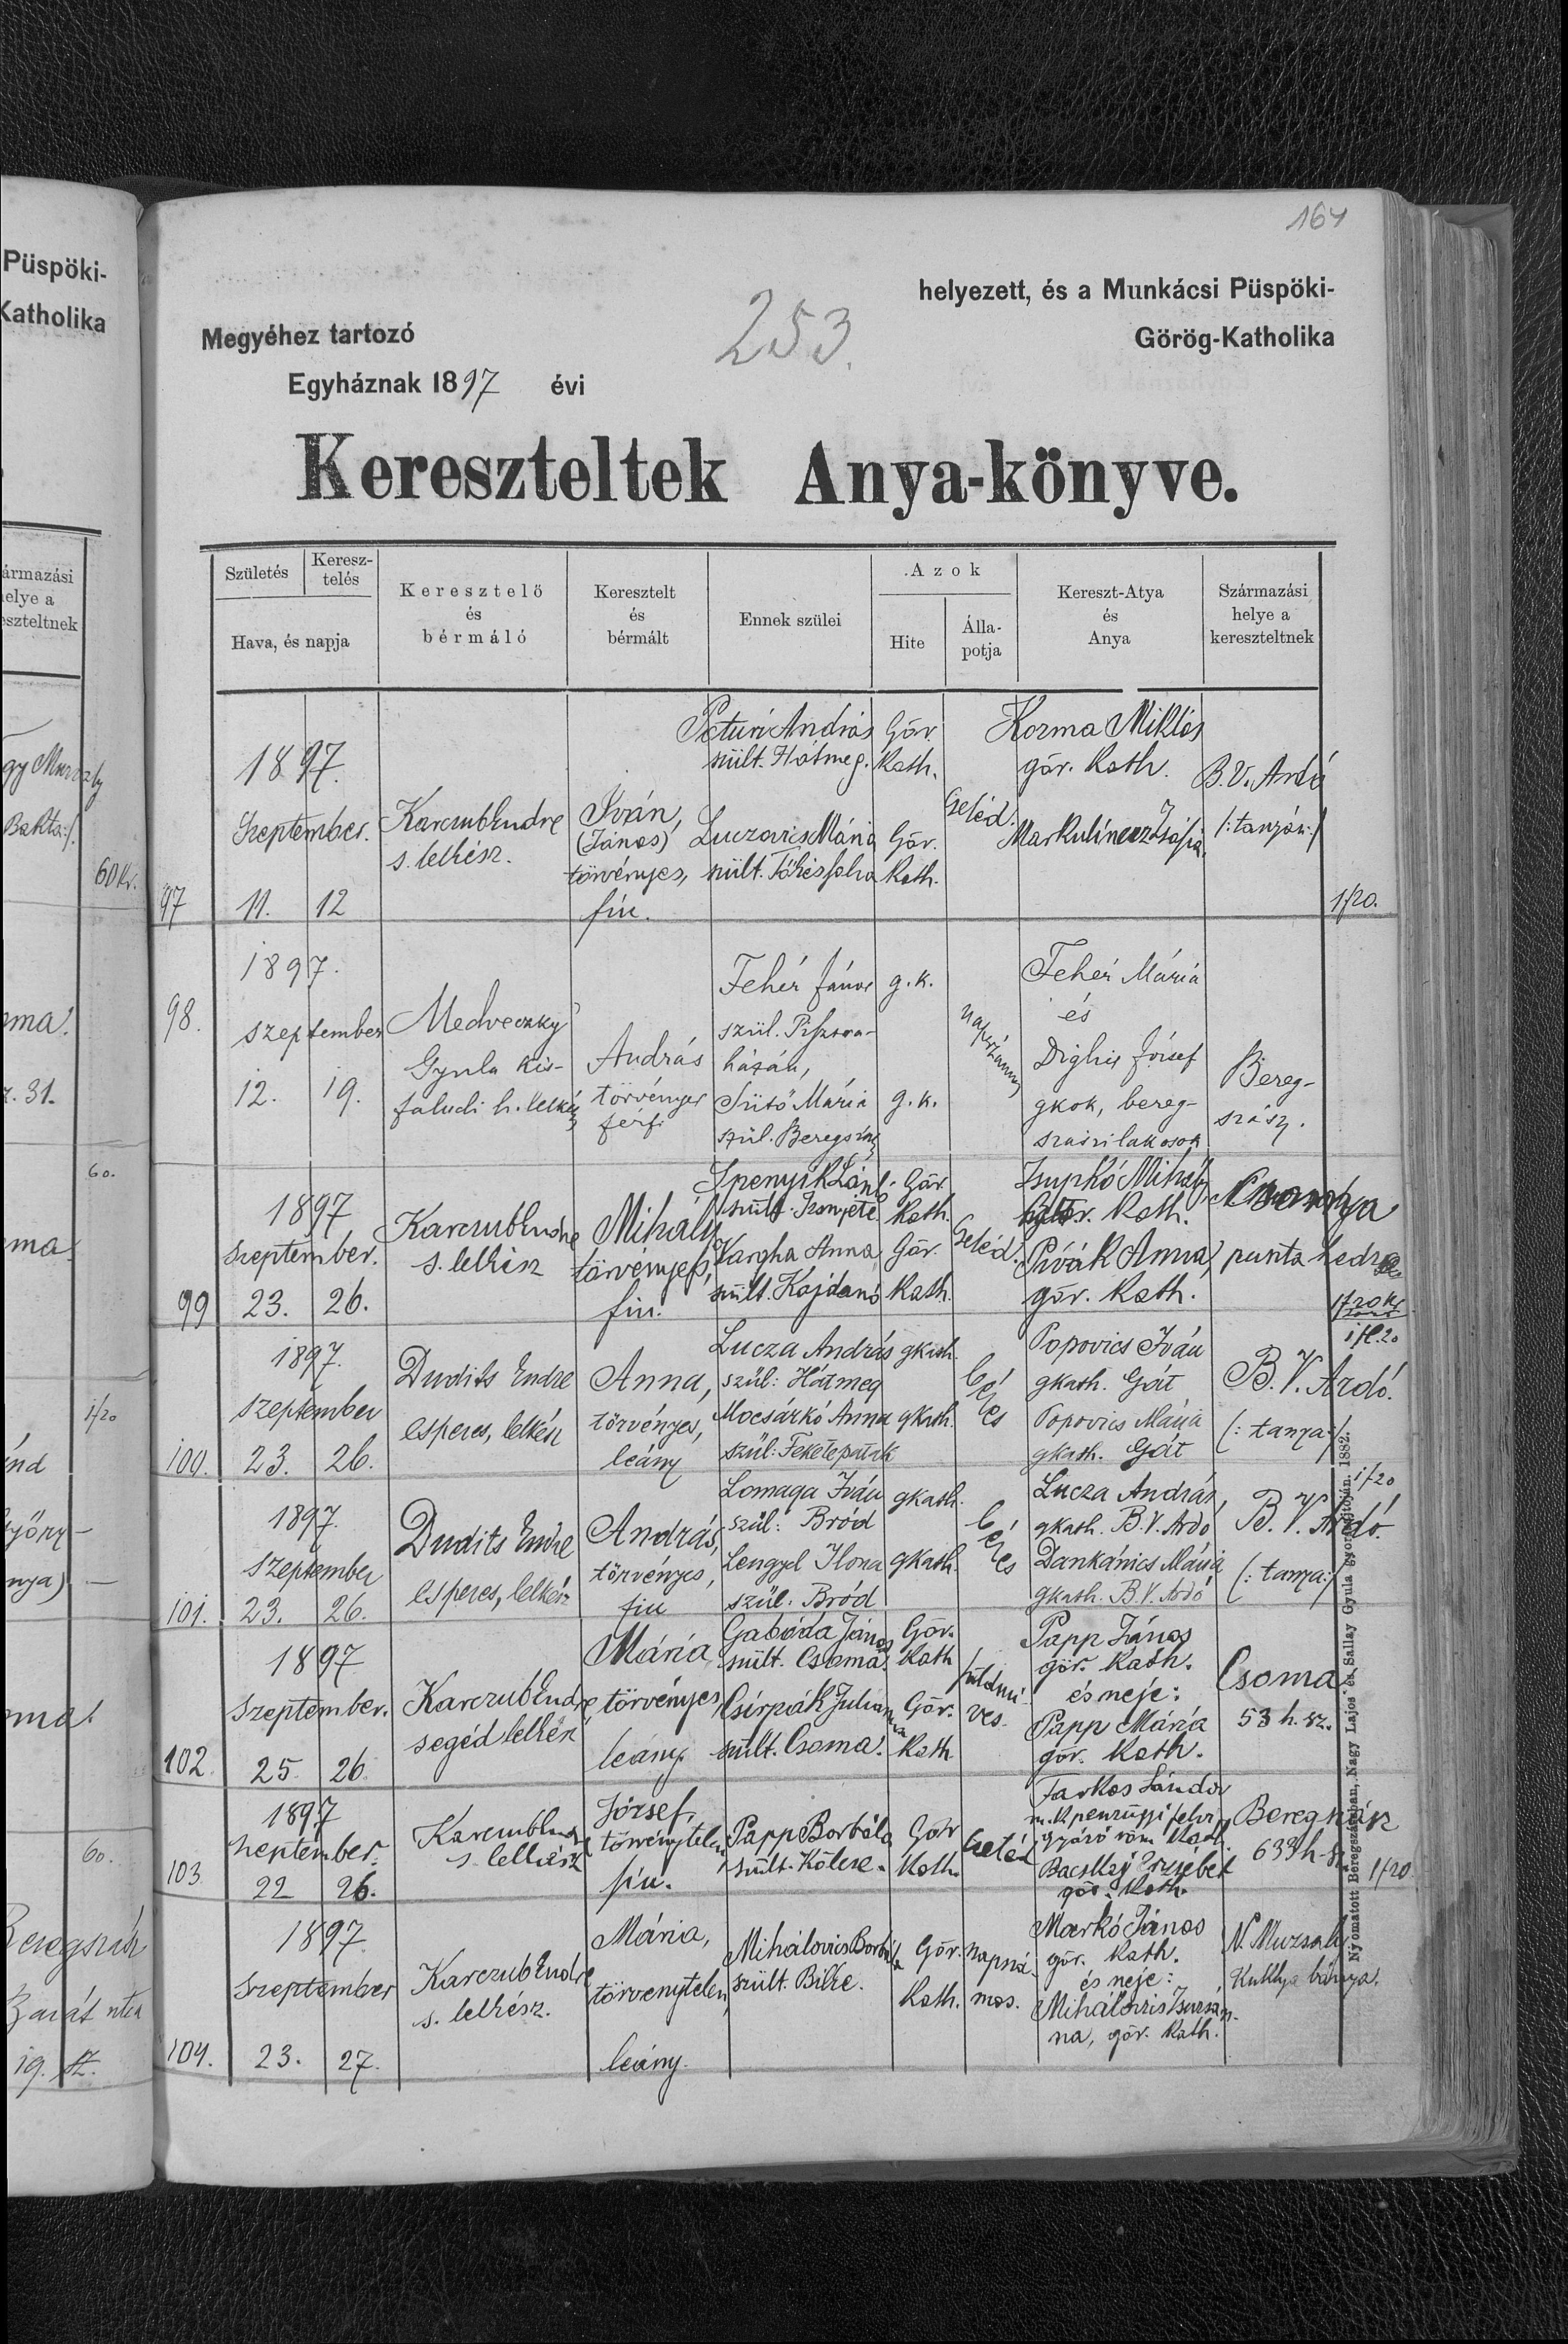 164
253.
helyezett, és a Munkácsi Püspöki-
Megyéhez tartozó
Görög-Katholika
Egyháznak 1897 évi
Kereszteltek Anya-könyve.
Születés
Keresz-
telés
Hava, és napja
Keresztelő
és
bérmáló
Keresztelt
és
bérmált
Ennek szülei
Azok
Hite
Álla-
potja
Kereszt-Atya
és
Anya
Származási
helye a
kereszteltnek
97
1897.
Szeptember.
11. 12
Karczub Endre
s. lelkész.
Iván,
(János)
törvényes,
fiu.
Peturi András
szült. Hátmeg.
Luczovics Mária
szült.
Gör.
Kath.
Gör.
Kath.
Cseléd.
Kozma Miklós
gör. Kath.
B.V. Ardó
(:tanyán:)
1f20.
98.
1897.
szeptember
12. 19.
Medveczky
Gyula kis-
faludi h. lelkész
András
törvényes
férfi
Fehér János
szül.
házán,
Sütő Mária
szül. Beregszász
g.k.
g.k.
napszámos
Fehér Mária
és
Dighis József
gkok, bereg-
szászi lakosok
Bereg-
szász.
99
1897
Szeptember.
23. 26.
Karczub Endre
s. lelkész
Mihály
törvényes,
fiu.
szült. Izsnyéte
Vargha Anna
szült. Kajdanó
Gör.
Kath.
Gör.
Kath.
Cseléd.
Zsupkó Mihály
gör. Kath.
Pivák Anna,
gör. Kath.
1f20 kr
100.
1897.
szeptember
23. 26.
Dudits Endre
esperes, lelkész
Anna,
törvényes,
leány
Lucza András
szül: Hátmeg
Mocsárkó Anna
szül: Feketepatak
gkath.
gkath.
béres
Popovics Iván
gkath. Gát
Popovics Mária
gkath. Gát
B.V. Ardó.
(: tanya:)
1fl.20
101.
1897.
szeptember
23. 26.
Dudits Endre
esperes, lelkész
András,
törvényes,
fiu
Lomaga Iván
szül: Bród
Lengyel Ilona
szül: Bród
gkath.
gkath.
béres
Lucza András,
gkath. B.V. Ardó
Dankánics Mária
gkath. B.V. Ardó
B.V. Ardó.
(: tanya:)
1f20
102.
1897
Szeptember.
25 26
Karczub Endre
segédlelkész
Mária,
törvényes,
leány
Gabóda János
szült. Csoma.
Csirpák Julianna
szült. Csoma.
Gör.
Kath
Gör.
Kath
földmi-
ves.
Papp János
gör. Kath.
és neje:
Papp Mária
gör. Kath.
Csoma
53 h. sz.
103
1897
Szeptember.
22 26.
Karczub Endre
s. lelkész
József,
törvénytelen,
fiu.
Papp Borbála
szült. Kölcse.
Gör
Kath.
Cseléd
Farkas Sándor
róm. Kath.
Bacskay Erzsébet
gör. Kath.
Beregszász
1f20
104.
1897.
Szeptember
23. 27.
Karczub Endre
s. lelkész.
Mária,
törvénytelen,
leány.
Mihálovics Borbála
szült. Bilke.
Gör.
Kath.
napszá-
mos.
Markó János
gör. Kath.
és neje:
Mihálovics Zsuzsán-
na, gör. Kath.
N. Muzsaly
Kuklya bánya.
Nyomatott Beregszászban, Nagy Lajos és Sallay Gyula gyorssajtóján. 1882.
Püspöki-
Katholika
ármazási
elye a
eszteltnek
60 kr.
60.
1f20
60.
Beregszász
19. sz.